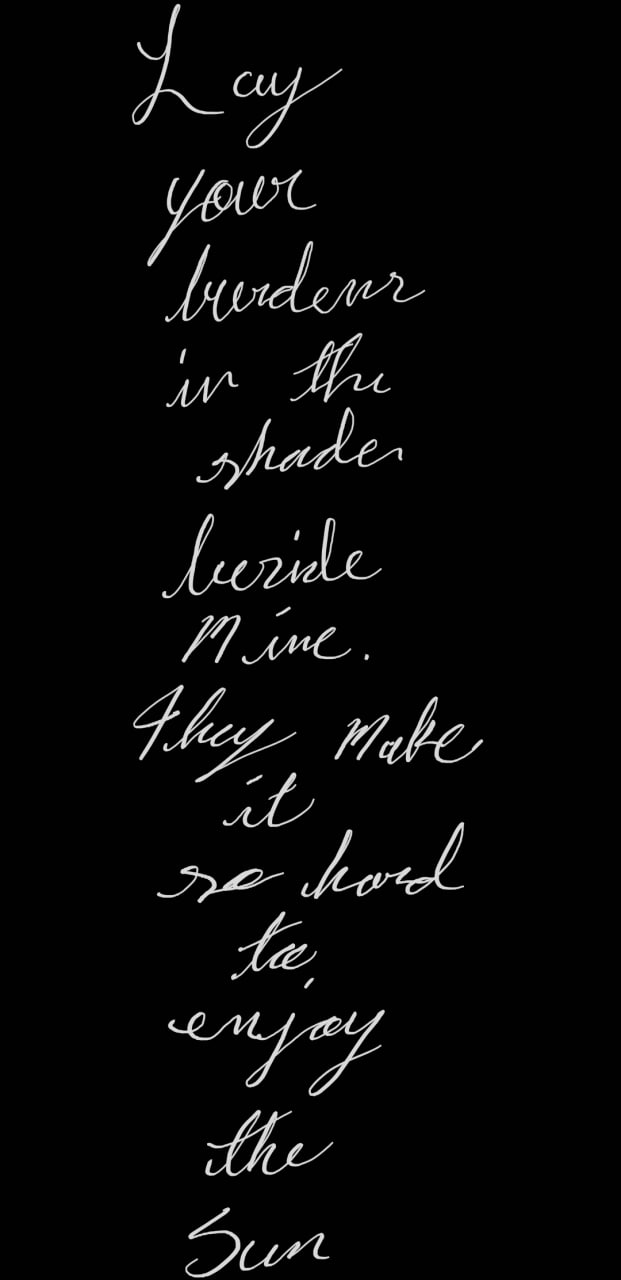 Lay
your
burdens
in the
shade
beside
Mine.
They Make
it
so hard
to
enjoy
the
Sun